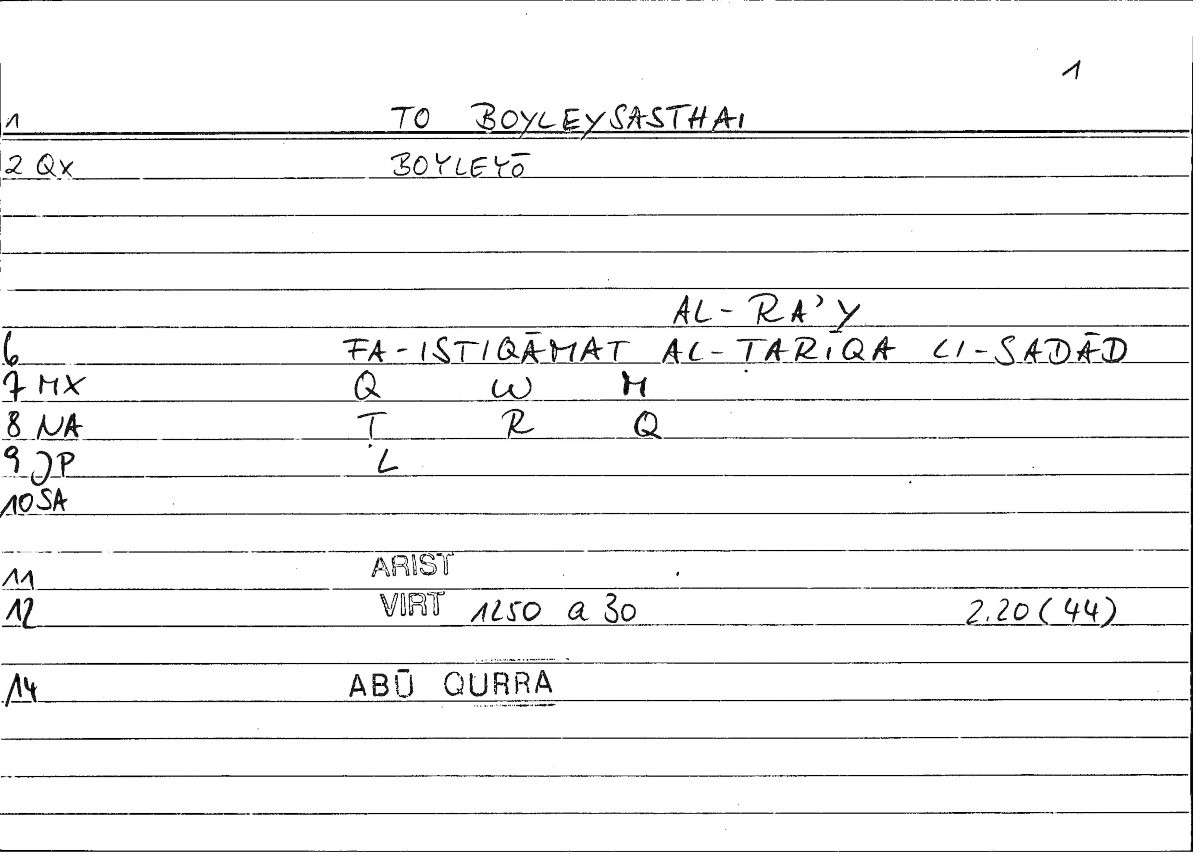 1
1 TO BOYLEYSASTHAI
2 QX BOYLEYŌ
AL-RA'Y
6 FA-ISTIQĀMAT AL-ṬARĪQA LI-SADĀD
7 MX Q W M
8 NA Ṭ R Q
9 JP L
10 SA
11 ARIST
12 VIRT 1250 a 30 2.20 (44)
14 ABŪ QURRA